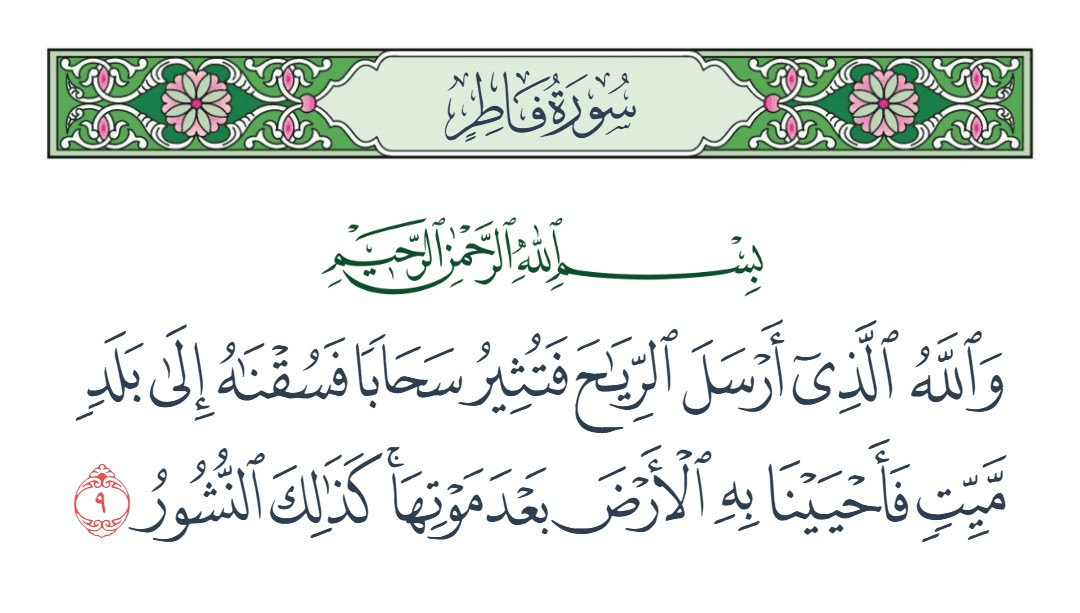 سُورَةُ فَاطِرٍ
بِسْمِ ٱللَّهِ ٱلرَّحْمَٰنِ ٱلرَّحِيمِ
وَٱللَّهُ ٱلَّذِىٓ أَرْسَلَ ٱلرِّيَٰحَ فَتُثِيرُ سَحَابًا فَسُقْنَٰهُ إِلَىٰ بَلَدٍ
مَّيِّتٍ فَأَحْيَيْنَا بِهِ ٱلْأَرْضَ بَعْدَ مَوْتِهَا ۚ كَذَٰلِكَ ٱلنُّشُورُ ٩